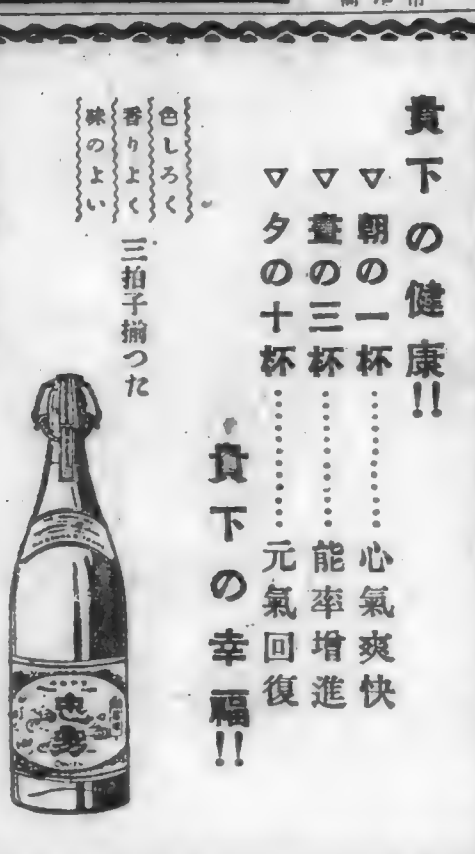 貴下の健康!!
▽朝の一杯…………心氣爽快
▽晝の三杯…………能率增進
▽夕の十杯…………元氣回復
貴下の幸福!!
色しろく
香りよく
味のよい
三拍子揃つた
忠勇